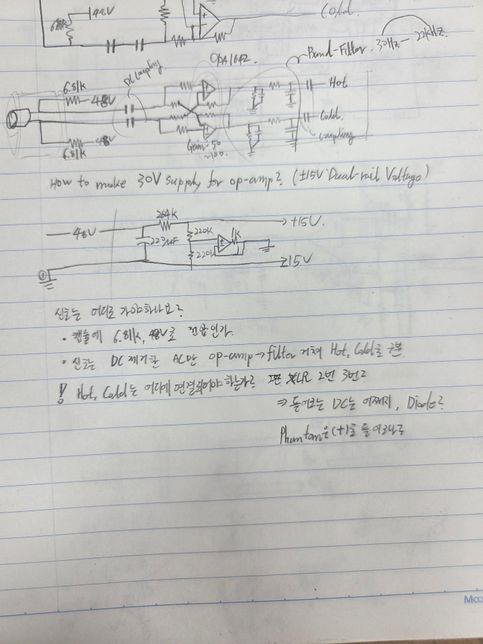 48V
Cold.
OPA1642.
Band-Filter. 30Hz ~ 22kHz.
6.81k
48V
DC coupling
Hot
Cold.
coupling
48V
6.81k
Gain: 50
~100.
How to make 30V supply for op-amp? (±15V Dual-rail Voltage)
264k
+15V.
48V
220k
1k
220k
신호는 어디로 가야하나요?
• 캡슐에 6.81k, 48V로 전압인가.
• 신호는 DC 제거한 AC만 op-amp → filter 거쳐 Hot, Cold로 구분
! Hot, Cold는 어디에 연결되어야 하는가? XLR 2번 3번?
⇒ 들어오는 DC는 어쩌지, Diode?
Phantom은 (+)로 들어오나?